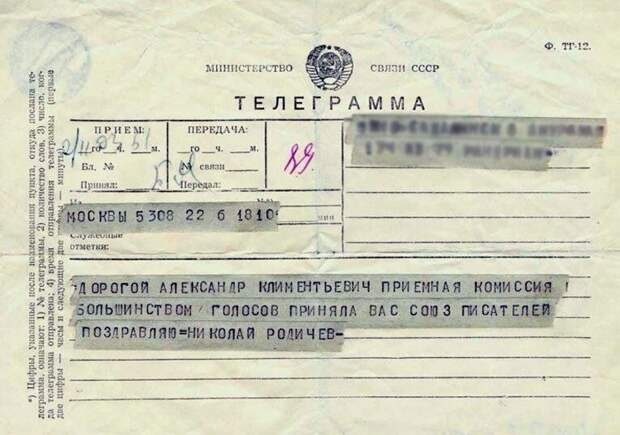 Ф. ТГ-12.
МИНИСТЕРСТВО СВЯЗИ СССР
ТЕЛЕГРАММА
ПРИЕМ:
го ч. м.
Бл. №
Принял:
ПЕРЕДАЧА:
го ч. м.
№ связи
Передал:
МОСКВЫ 5308 22 6 1810
Служебные
отметки:
ДОРОГОЙ АЛЕКСАНДР КЛИМЕНТЬЕВИЧ ПРИЕМНАЯ КОМИССИЯ
БОЛЬШИНСТВОМ ГОЛОСОВ ПРИНЯЛА ВАС СОЮЗ ПИСАТЕЛЕЙ
ПОЗДРАВЛЯЮ=НИКОЛАЙ РОДИЧЕВ-
*) Цифры, указанные после наименования пункта, откуда послана те-
леграмма, означают: 1) № телеграммы, 2) количество слов, 3) число, ког-
да телеграмма отправлена; 4) время отправления телеграммы (первые
две цифры — часы и следующие две цифры — минуты)